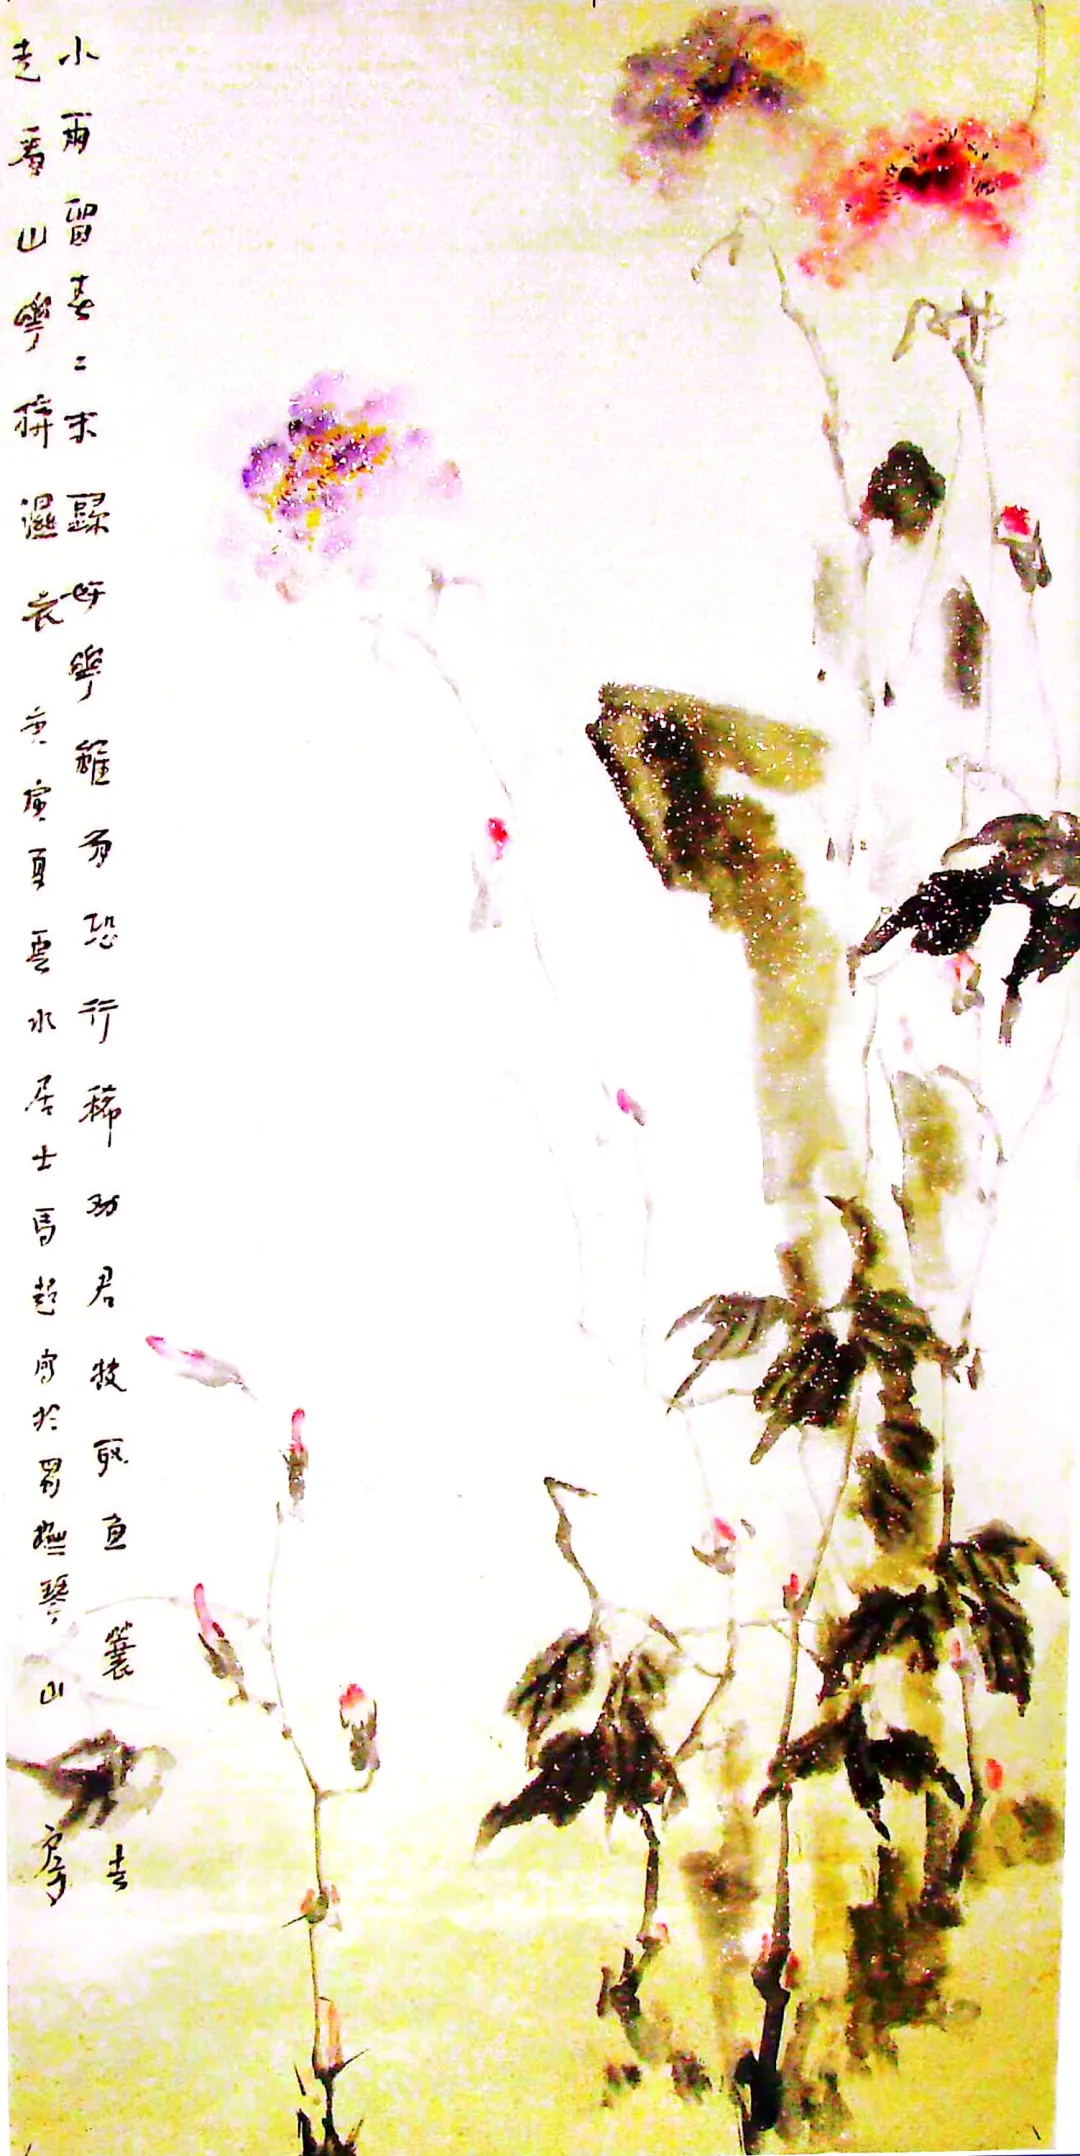 小雨留春〻未歸好華雖有恐行稀劝君披取魚蓑去
走看山華拚濕衣庚寅夏雲水居士馬超寫於蜀撫琴山房